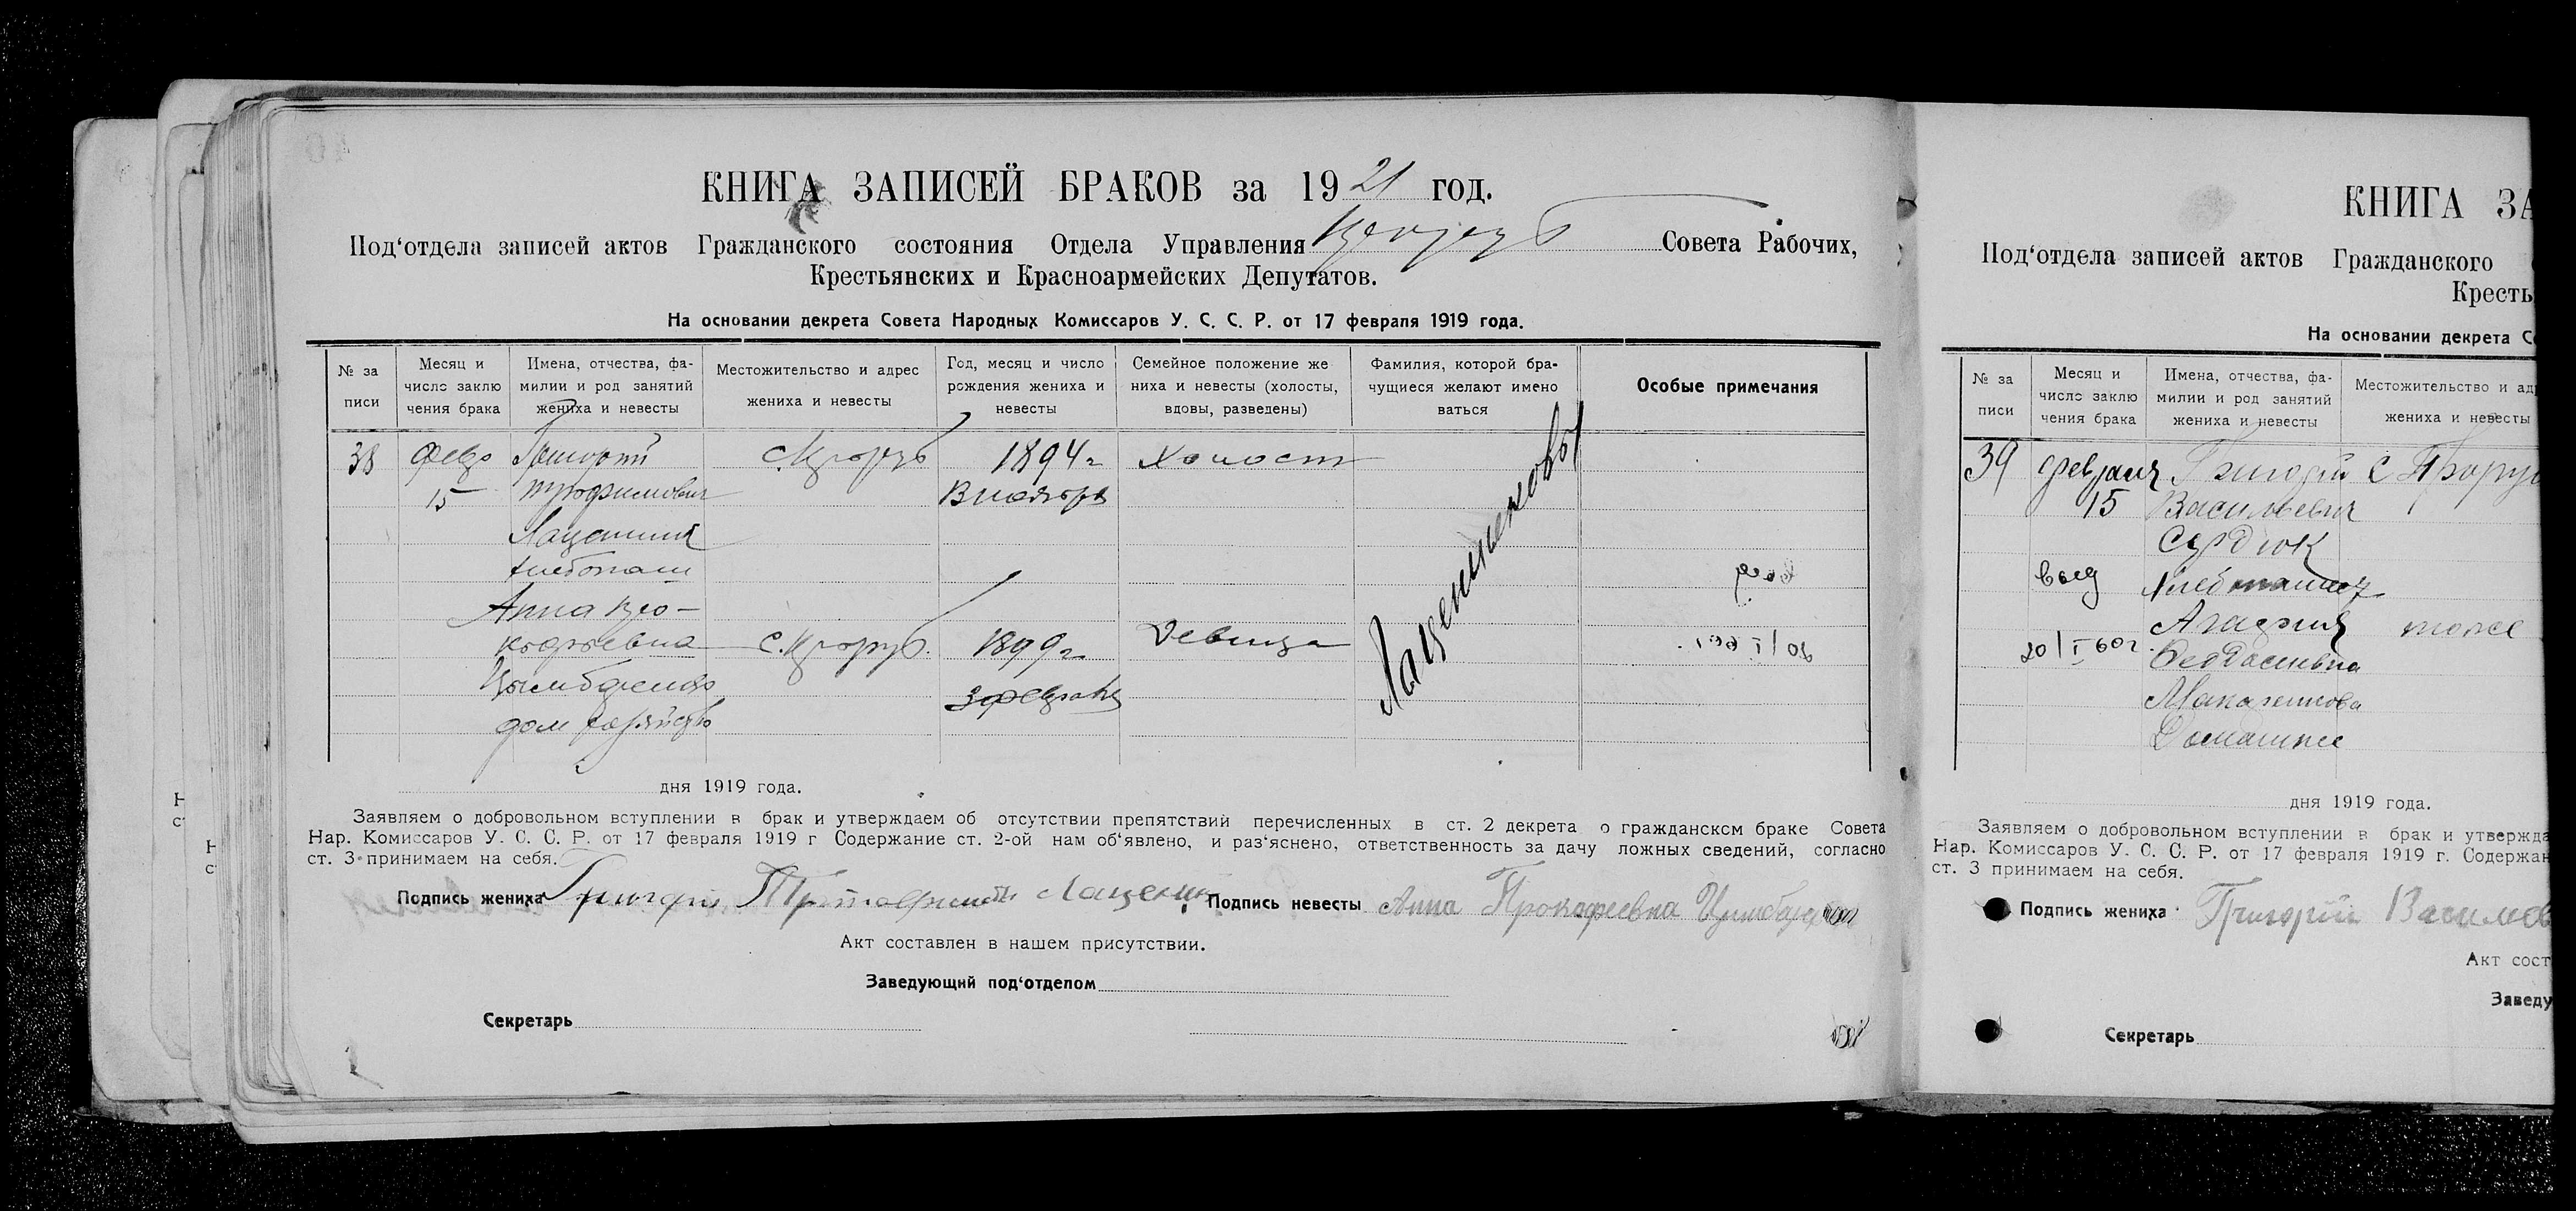 КНИГА ЗАПИСЕЙ БРАКОВ за 1921 год.
Под‘отдела записей актов Гражданского состояния Отдела Управления Совета Рабочих,
Крестьянских и Красноармейских Депутатов.
На основании декрета Совета Народных Комиссаров У. С. С. Р. от 17 февраля 1919 года.
№ за писи
Месяц и число заклю чения брака
Имена, отчества, фа- милии и род занятий жениха и невесты
Местожительство и адрес жениха и невесты
Год, месяц и число рождения жениха и невесты
Семейное положение же ниха и невесты (холосты, вдовы, разведены)
Фамилия, которой бра- чущиеся желают имено ваться
Особые примечания
38 Февр Григорий 1894 г Холост
15 трофимович 8 ноября
хлебопаш
Анна про-
кофьевна 1899 г Девица
3 февраля
дом хозяйство
дня 1919 года.
Заявляем о добровольном вступлении в брак и утверждаем об отсутствии препятствий перечисленных в ст. 2 декрета о гражданском браке Совета
Нар. Комиссаров У. С. С. Р. от 17 февраля 1919 г Содержание ст. 2-ой нам об‘явлено, и раз‘яснено, ответственность за дачу ложных сведений, согласно
ст. 3 принимаем на себя.
Подпись жениха Григорий Подпись невесты Анна Прокофеевна
Акт составлен в нашем присутствии.
Заведующий под‘отделом
Секретарь
КНИГА ЗА
Под‘отдела записей актов Гражданского
Кресть
На основании декрета С
№ за писи
Месяц и число заклю чения брака
Имена, отчества, фа- милии и род занятий жениха и невесты
Местожительство и ад жениха и невесты
39 февраля Григорий С
15 Васильевич
Сердюк
выд
Агафия тоже
20/I 60 г.
Домашнее
дня 1919 года.
Заявляем о добровольном вступлении в брак и утвержда
Нар. Комиссаров У. С. С. Р. от 17 февраля 1919 г. Содержан
ст. 3 принимаем на себя.
Подпись жениха Григорий
Акт сост
Заведу
Секретарь